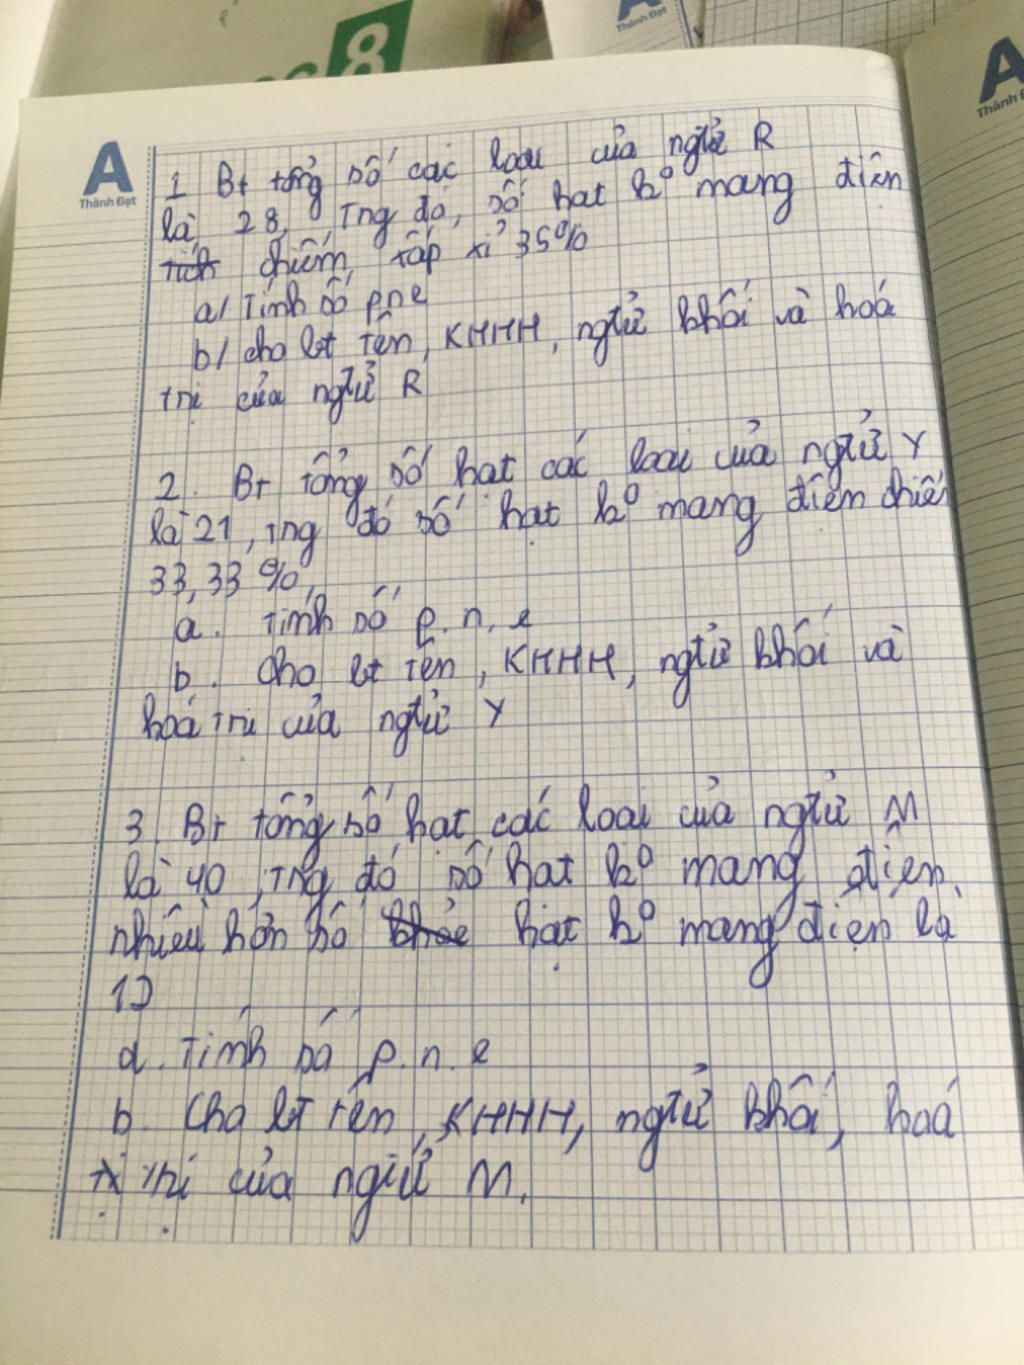 8
A
Thành Đạt
A
Thành Đạt
A
Thành Đạt
1 Bt tổng số các loại của ngtử R
là 28, Tng đó, số hạt ko mang điện
tích chiếm xấp xỉ 35%
a/ Tính số p n e
b/ cho bt tên, KHHH, ngtử khối và hoá
trị của ngtử R
2. Bt tổng số hạt các loại của ngtử Y
là 21, tng đó số hạt ko mang điện chiếm
33,33 %,
a. Tính số p. n, e
b. cho bt tên, KHHH, ngtử khối và
hoá trị của ngtử Y
3. Bt tổng số hạt các loại của ngtử M
là 40, Tng đó số hạt ko mang điện
nhiều hơn số hạt ko mang điện là
12
a. Tính số p. n. e
b. Cho bt tên, KHHH, ngtử khối, hoá
trị của ngtử M.